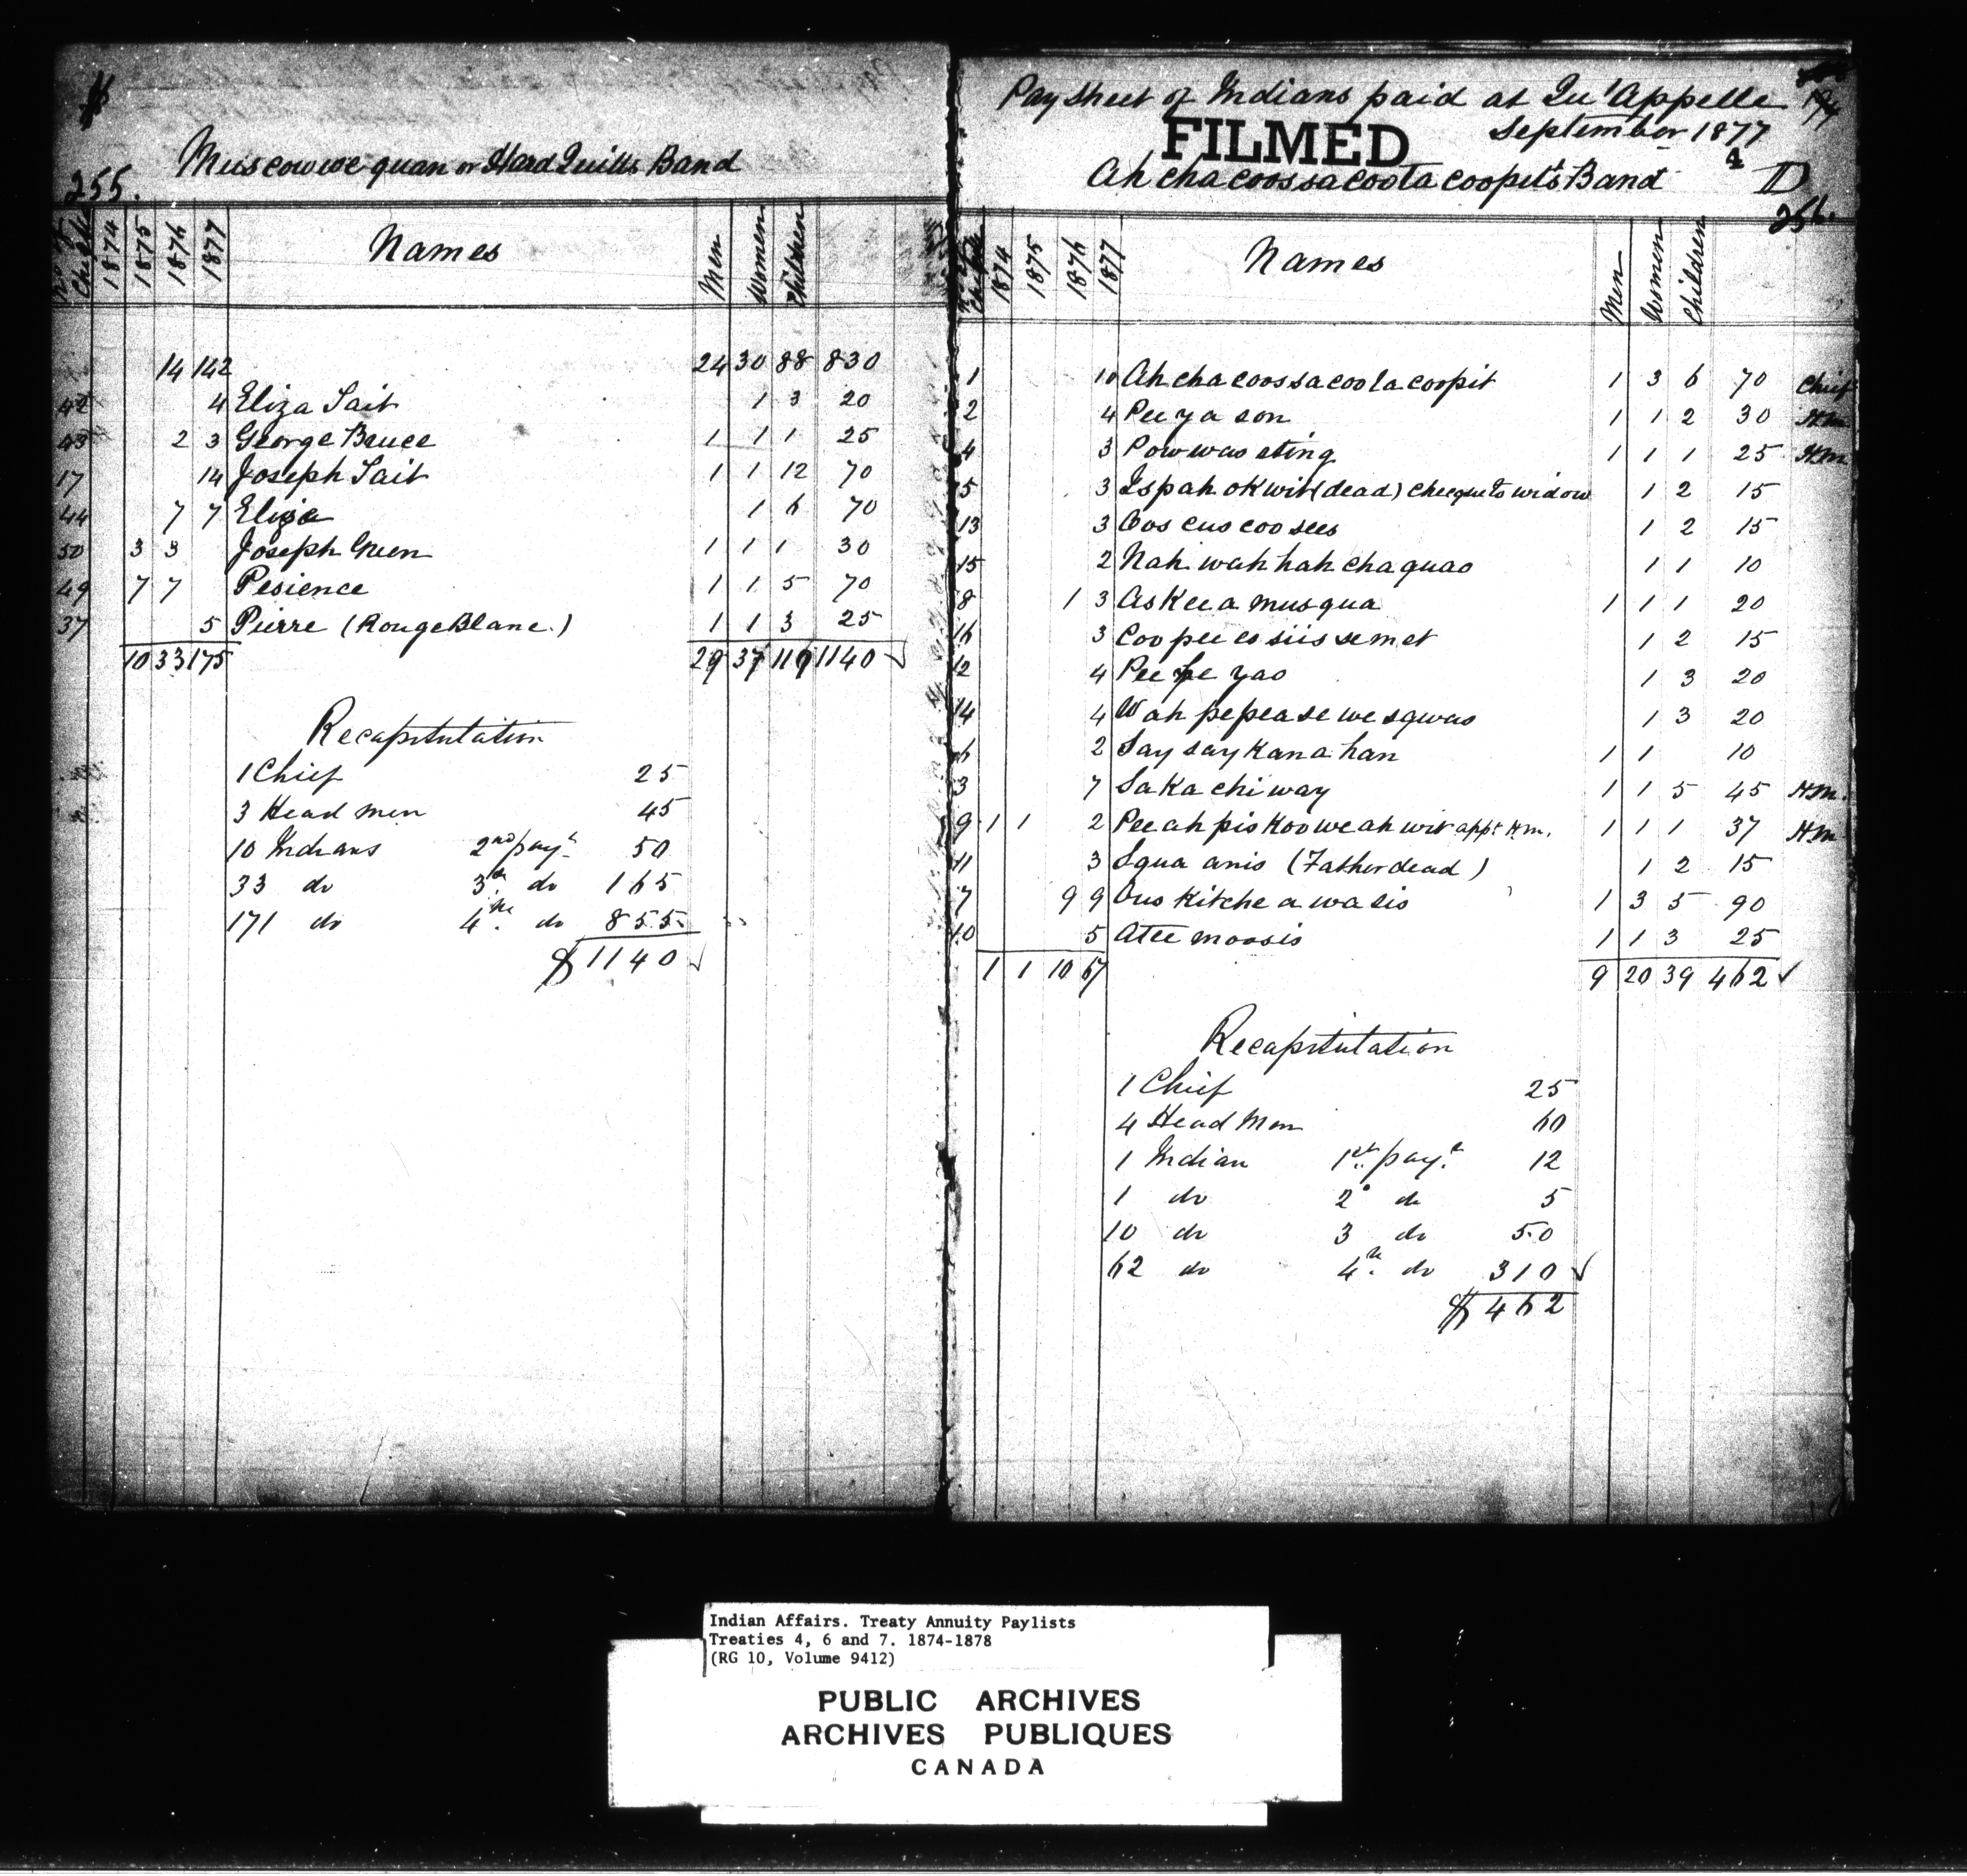 255. Muscowequan or Hard Quills Band
No of Cheque 1874 1875 1876 1877 Names Men Women Children
14 142 24 30 88 830
42 4 Eliza Tait 1 3 20
43 2 3 George Bruce 1 1 1 25
17 14 Joseph Tait 1 1 12 70
44 7 7 Eliza 1 6 70
50 3 3 Joseph Green 1 1 1 30
49 7 7 Pesience 1 1 5 70
37 5 Pierre (Rouge Blanc.) 1 1 3 25
10 33 175 29 37 119 1140
Recapitulation
1 Chief 25
3 Head men 45
10 Indians 2nd payt 50
33 do 3d do 165
171 do 4th do 855
$1140
Pay Sheet of Indians paid at Qu'Appelle
FILMED September 1877
4
Ah cha coossa coota coopet's Band D
256.
No of Cheque 1874 1875 1876 1877 Names Men Women Children
1 10 Ah cha coossa coota coopit 1 3 6 70 Chief
2 4 Pee ya son 1 1 2 30 H.m
4 3 Pow was sting 1 1 1 25 H.m
5 3 Ispah ok wit (dead) cheque to widow 1 2 15
13 3 Oos cus coo sees 1 2 15
15 2 Nah wah hah cha quao 1 1 10
8 1 3 As Kee a musqua 1 1 1 20
16 3 Coo pee es siis se met 1 2 15
12 4 Pee pe yao 1 3 20
14 4 Wah pe pea se we sqwao 1 3 20
6 2 Say say Kan a han 1 1 10
3 7 Sa Ka chi way 1 1 5 45 H.m.
9 1 1 2 Pee ah pis Koo we ah wit appt H.m. 1 1 1 37 H.m
11 3 Squa anis (Father dead) 1 2 15
7 9 9 Ous Kitche a wa sis 1 3 5 90
10 5 Atee moosis 1 1 3 25
1 1 10 67 9 20 39 462
Recapitulation
1 Chief 25
4 Head Men 60
1 Indian 1st payt 12
1 do 2d do 5
10 do 3 do 50
62 do 4th do 310
$462
Indian Affairs. Treaty Annuity Paylists
Treaties 4, 6 and 7. 1874-1878
(RG 10, Volume 9412)
PUBLIC ARCHIVES
ARCHIVES PUBLIQUES
CANADA